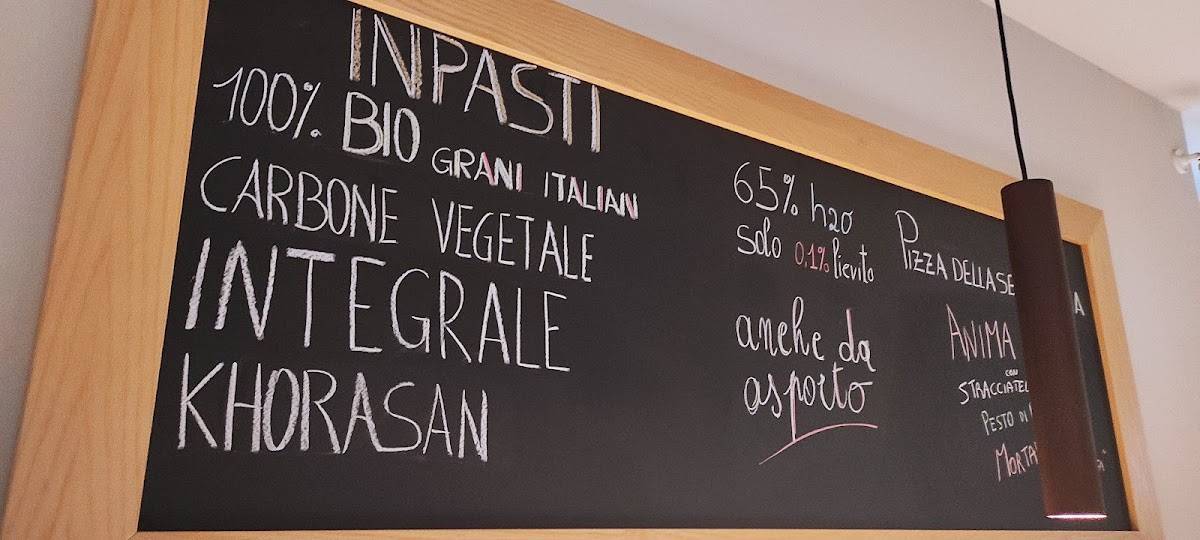 INPASTI
100% BIO GRANI ITALIAN
CARBONE VEGETALE
INTEGRALE
KHORASAN
65% h2o
solo 0,1% lievito
anche da
asporto
PIZZA DELLA
ANIMA
CON
PESTO DI